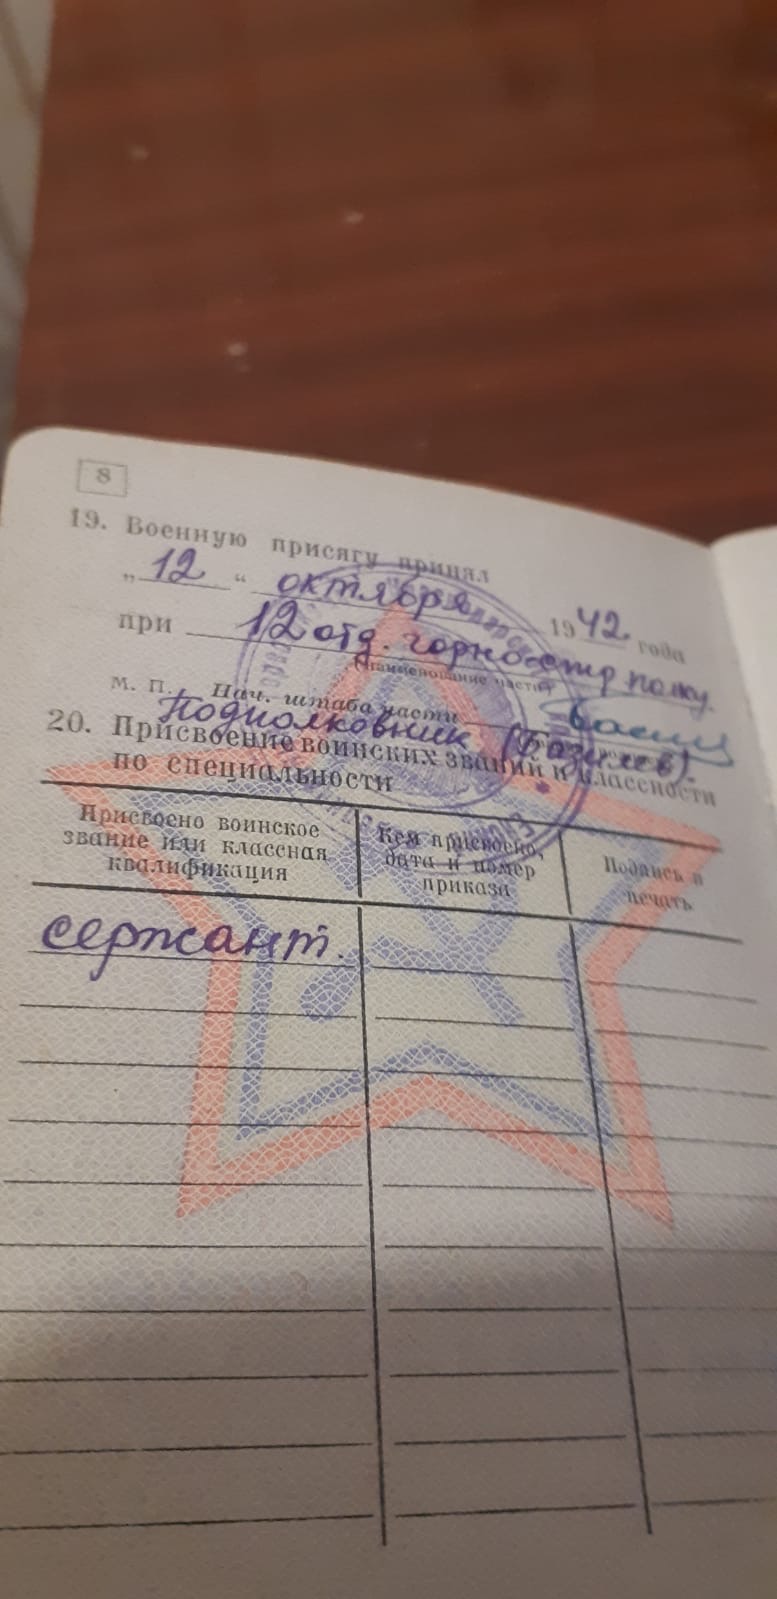 8
19. Военную присягу принял
„ 12 “ октября 1942 года
при 12 отд. горно-стр полку
(Наименование части)
М. П. Нач. штаба части
Подполковник (Базилев).
20. Присвоение воинских званий и классности
по специальности
Присвоено воинское
звание или классная
квалификация
Кем присвоено,
дата и номер
приказа
Подпись и
печать
сержант.